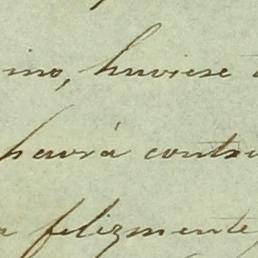 ino, huviese
havrá contri
felizmente,